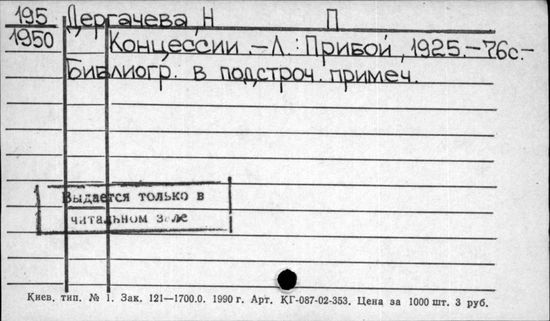 195 Дергачева, Н П
1950 Концессии.–Л.: Прибой, 1925.–76с.–
Библиогр. в подстроч. примеч.
Выдается только в
читальном зале
Киев. тип. № 1. Зак. 121—1700.0. 1990 г. Арт. КГ-087-02-353. Цена за 1000 шт. 3 руб.